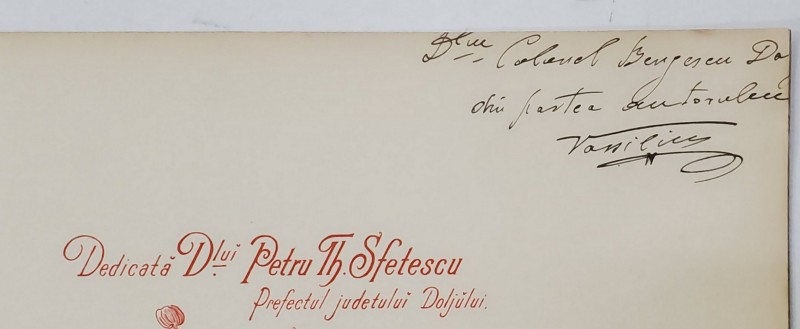 Dlui Colonel Bengescu
din partea autorului
Vassiliu
Dedicată Dlui Petru Th. Sfetescu
Prefectul judetului Doljŭlui.